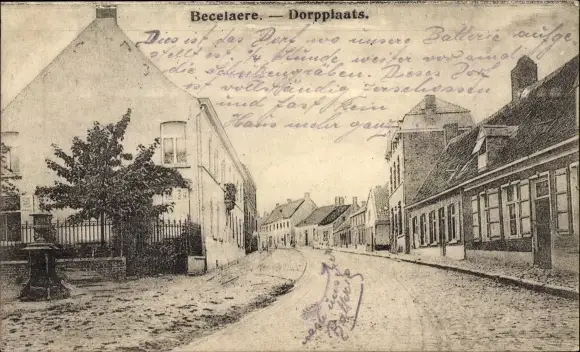 Becelaere. — Dorpplaats.
Dies ist das Dorf wo unsere Batterie aufge
stellt ist ¼ Stunde weiter vor sind
die Schützengraben. Dieses Dorf
ist vollständig zerschossen
und fast kein
Haus mehr ganz
Batterie